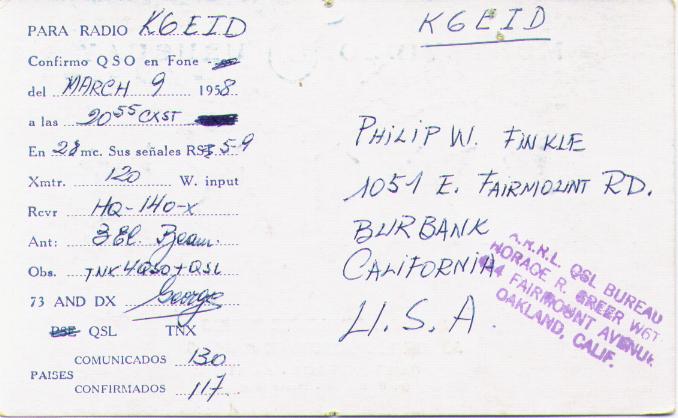 PARA RADIO K6EID
Confirmo QSO en Fone
del MARCH 9 1958
a las 20⁵⁵ CXST
En 28 mc. Sus señales RS 5-9
Xmtr. 120 W. input
Rcvr HQ-140-X
Ant: 3 El Beam
Obs. TNK 4 QSO + QSL
73 AND DX George
PSE QSL TNX
COMUNICADOS 130
PAISES
CONFIRMADOS 117
K6EID
PHILIP W. FINKLE
1051 E. FAIRMOUNT RD.
BURBANK
CALIFORNIA
U.S.A.
A.R.R.L. QSL BUREAU
HORACE R. GREER W6T
FAIRMOUNT AVENUE
OAKLAND, CALIF.